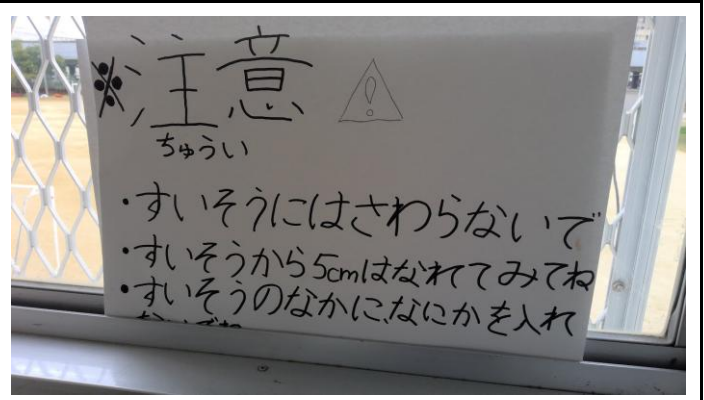 ※注意
ちゅうい
・すいそうにはさわらないで
・すいそうから5cmはなれてみてね
・すいそうのなかに、なにかを入れ
ないでね